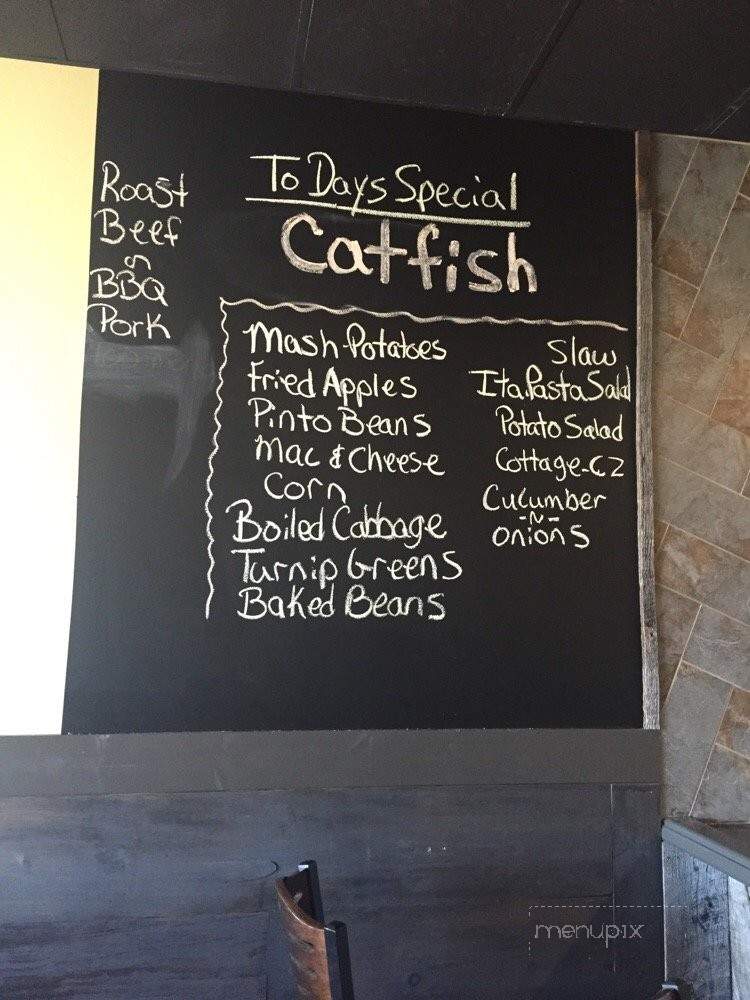 Roast
Beef
or
BBQ
Pork
To Days Special
Catfish
Mash Potatoes
Fried Apples
Pinto Beans
Mac & Cheese
Corn
Boiled Cabbage
Turnip Greens
Baked Beans
Slaw
Ita. Pasta Salad
Potato Salad
Cottage-CZ
Cucumber
-N-
onions
menupix